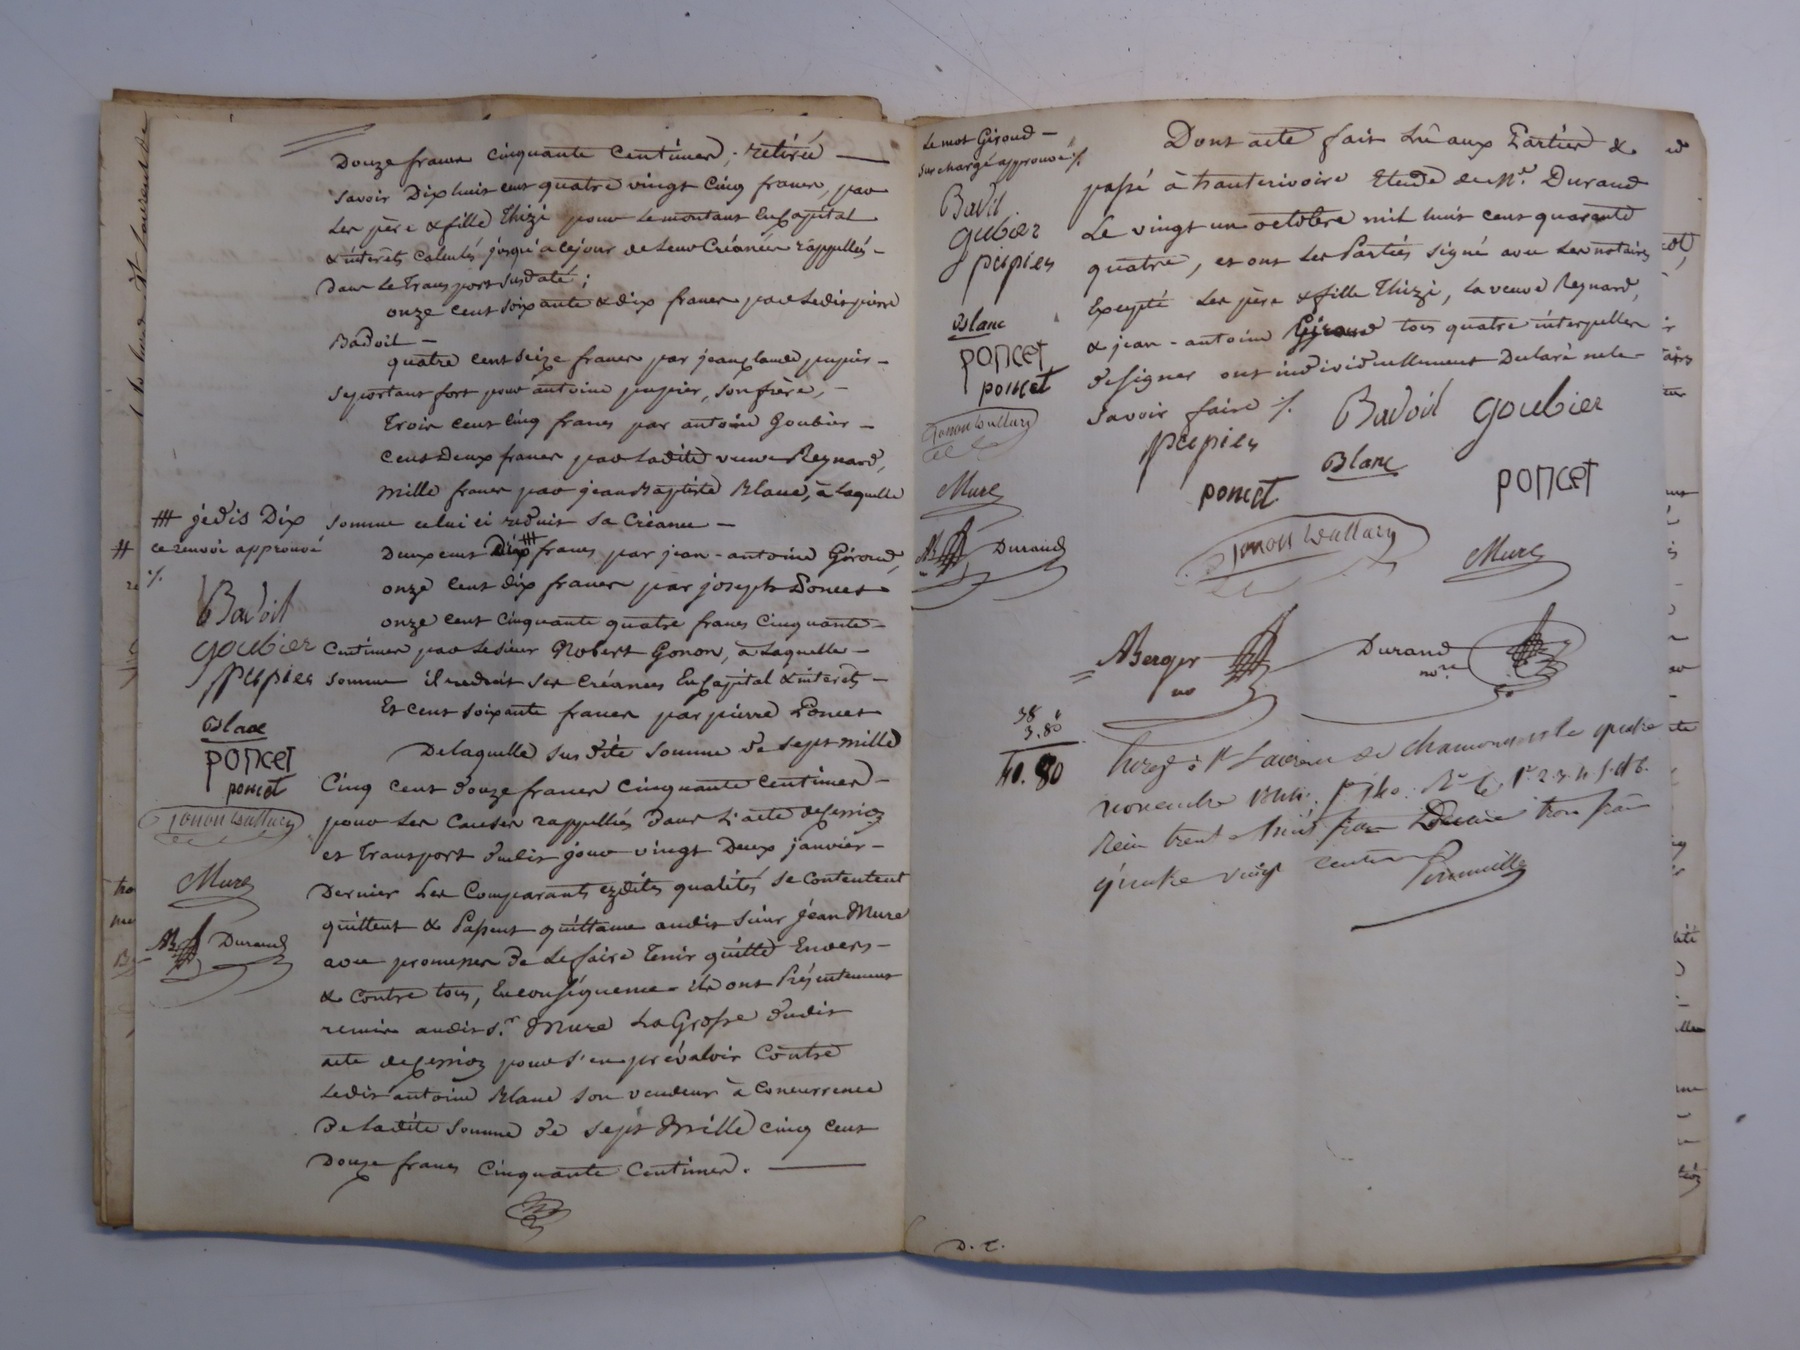 Douze francs cinquante centimes, retirée —
Savoir Dix huit cent quatre vingt cinq francs, par
Les père & fille Thizi pour le montant En Capital
& intérêts calculés jusqu'à ce jour de leurs Créances rappellés -
Dans le Transport susdaté ;
onze cent soixante & dix francs par Ledit pierre
Badoil —
quatre cent seize francs par jean claude pupier -
se portant fort pour antoine pupier, son frère, -
Trois cent cinq francs par antoine Goubier -
cent Deux francs par Ladite veuve Reynard,
mille francs par jean Baptiste Blanc, à laquelle
somme celui ci réduit sa Créance -
Deux cent Dix francs par jean-antoine Giroud,
onze cent dix francs par joseph Poncet
onze cent cinquante quatre francs cinquante -
Centimes par le sieur Robert Gonon, à Laquelle -
somme il réduit ses Créances En Capital & intérêts -
Et cent soixante francs par pierre Poncet
De laquelle sus dite somme de sept mille
Cinq cent douze francs cinquante centimes -
pour les causes rappellées dans l'acte de Cession
et Transport dudit jour vingt Deux janvier -
Dernier Les Comparants ezdites qualités se contentent
quittent & Passent quittance audit sieur jean Mure
avec promesses de le faire Tenir quitte Envers -
& contre tous, En conséquence ils ont Présentement
remis audit S.r Mure La Grosse dudit
acte de Cession pour s'en prévaloir Contre
Ledit antoine Blanc son vendeur à Concurrence
De Ladite somme de sept mille cinq cent
Douze francs Cinquante Centimes. —
# je dis Dix
ce renvoi approuvé
Badoil
goubier
pupier
Blanc
poncet
poncet
Mure
AB Durand
Le mot Giroud -
surchargé approuvé
Badoil
goubier
pupier
Blanc
poncet
poncet
Mure
AB Durand
Dont acte fait Lû aux Parties &
passé à hauterivoire Etude de M.e Durand
Le vingt un octobre mil huit cent quarante
quatre, et ont Les Parties signé avec Les notaires
Excepté Les père & fille Thizi, La veuve Reynard,
& jean-antoine Giroud tous quatre interpellés
de signer ont individuellement Déclaré ne le -
savoir faire ./.
Badoil goubier
pupier
Blanc
poncet poncet
Mure
ABerger
no
Durand
no.re
38
3.80
40.80
novembre
quatre vingt centimes
D. C.